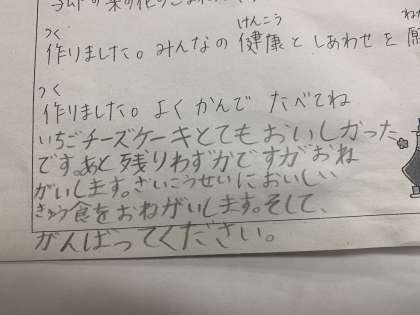 つく けんこう
作りました。みんなの 健康 と しあわせ を
つく
作りました。よく かんで たべてね
いちごチーズケーキとてもおいしかった
です。あと残りわずかですがおね
がいします。さいこうせいにおいしい
きゅう食をおねがいします。そして、
がんばってください。